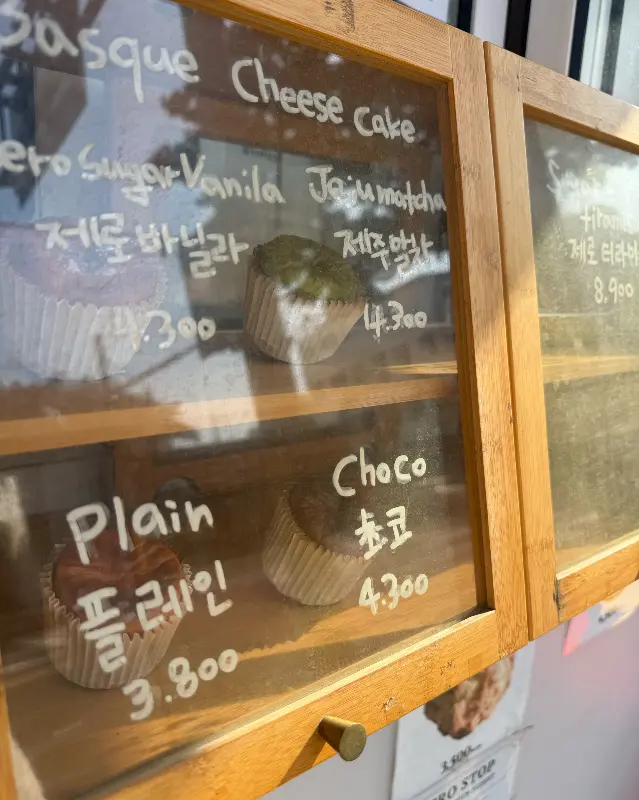 Basque Cheese cake
Zero Sugar Vanila
제로 바닐라
4.300
Jeju matcha
제주말차
4.300
Plain
플레인
3.800
Choco
초코
4.300
제로 티라미
8.900
3.500
STOP